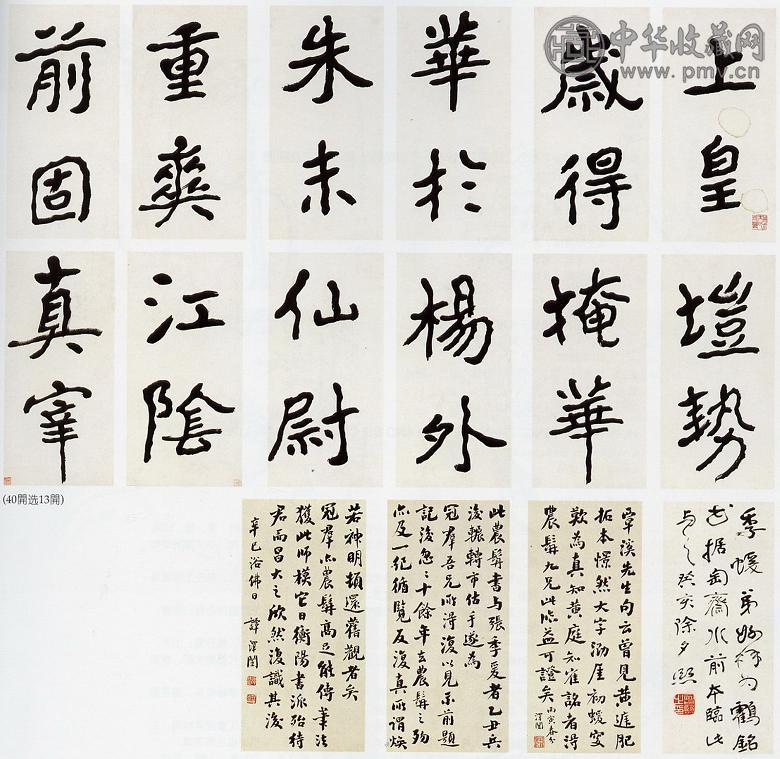 中华收藏网
www.pmv.cn
上皇
歲得
華於
朱未
重爽
前固
塏勢
掩華
楊外
仙尉
江陰
真宰
(40開选13開)
季蝯弟好 为鶴銘
据匋齋水前本臨此
与之癸亥除夕熙
覃溪先生句云曾見黄進肥
拓本憬然大字勒厓初蝯叟
歎為真知黄庭知 銘者得
農髯九兄此臨益可證矣丙寅春分
澤闓
此農髯書与張季爰者乙丑兵
後輾轉市估手遂為
冠羣吾兄所得復以見示前題
記後忽二十餘年去農髯之殁
亦及一紀循覽反復真所謂煥
若神明頓還舊觀者矣
冠羣亦農髯高足能傳筆法
獲此師模它日衡陽書派殆待
君而昌大之欣然復識其後
辛巳浴佛日 譚澤闓